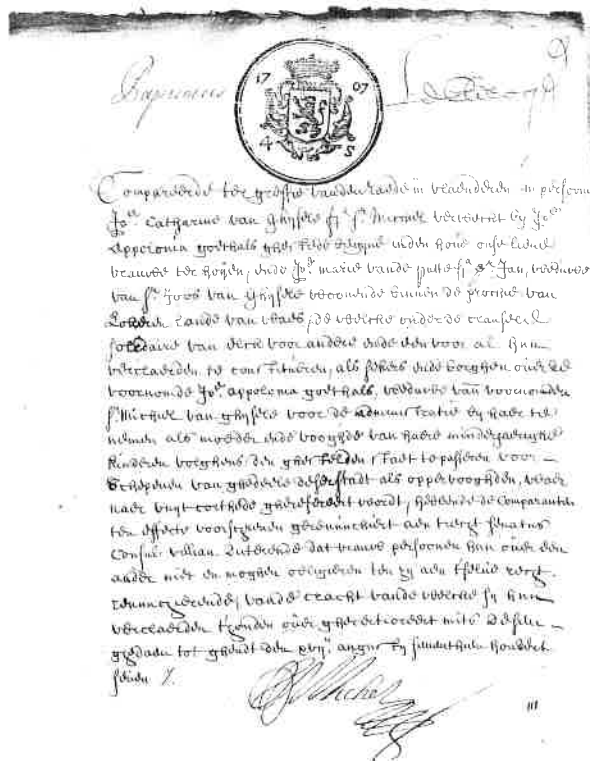 17 07
4 S
Compareerde ter greffie vanden raede in vlaenderen in persoone
Joe. Catharine van Ghysele fa. Sr. Michiel verweckt by Joe.
appolonia goethals gheestelyke beggyne inden hove onse lieve
vrauwe ter hoyen, ende Joe. marie vande putte fa. Sr. Jan, weduwe
van Sr. Joos van Ghysele woonende binnen de prochie van
Lokeren Lande van waes, de welcke onder de clausele
solidaire van elck voor andere ende een voor al hun
verclaerden te constitueren, als sekers ende borghen over de
voornomde Joe. appolonia goethals, weduwe van voornomden
Sr. Michiel van ghysele voor de administratie by haer te
nemen als moeder ende vooghde van haere minderjaerighe
kinderen volghens den staet te passeren voor
Schepenen van ghedeele deser stadt als oppervooghden, waer
naer vuyt corthede gherefereert wordt, hebbende de Comparanten
ten effecte voorschreven gerenunchiert aen tregt senatus
Consul vellian. dat vrauwe persoonen hun over een
ander niet en moghen obligieren ten zy aen tselve regt
renunchierende, vande cracht vande welcke sy hun
verclaerden over ghecertioreert mits desen
gedaen tot ghendt den xvij. augusty seventhien hondert
seven